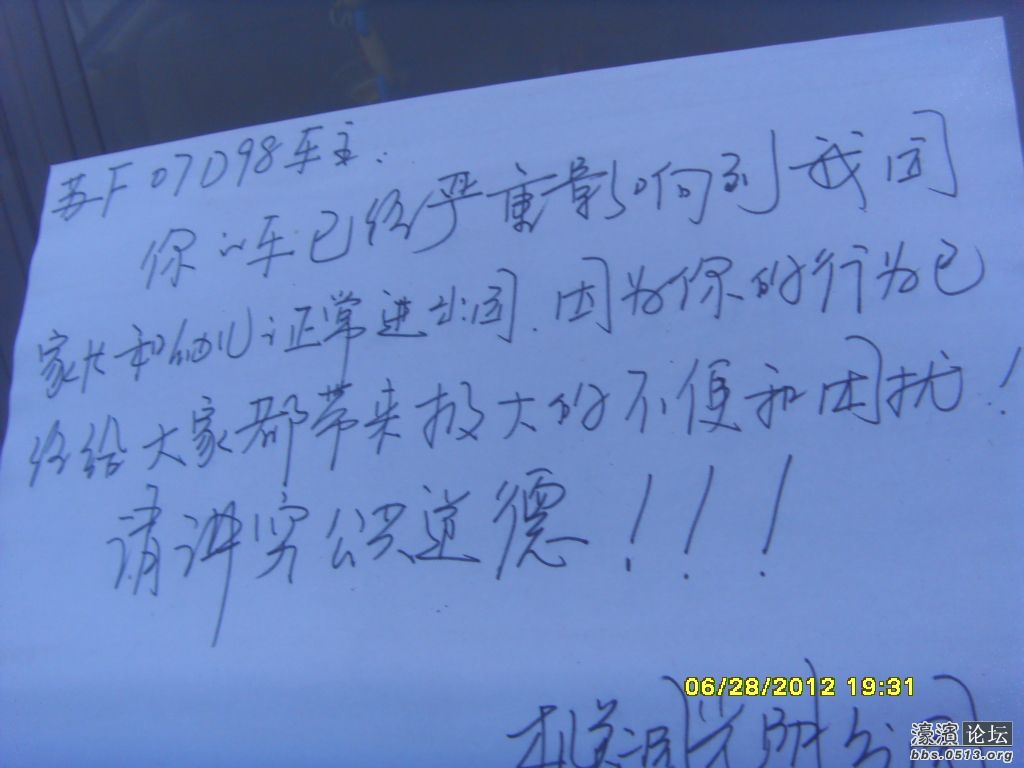 苏F 07D98车主:
你的车已经严重影响到我园
家长和幼儿正常进出园.因为你的行为已
经给大家都带来极大的不便和困扰!
请讲究公共道德!!!
06/28/2012 19:31
濠滨论坛
bbs.0513.org